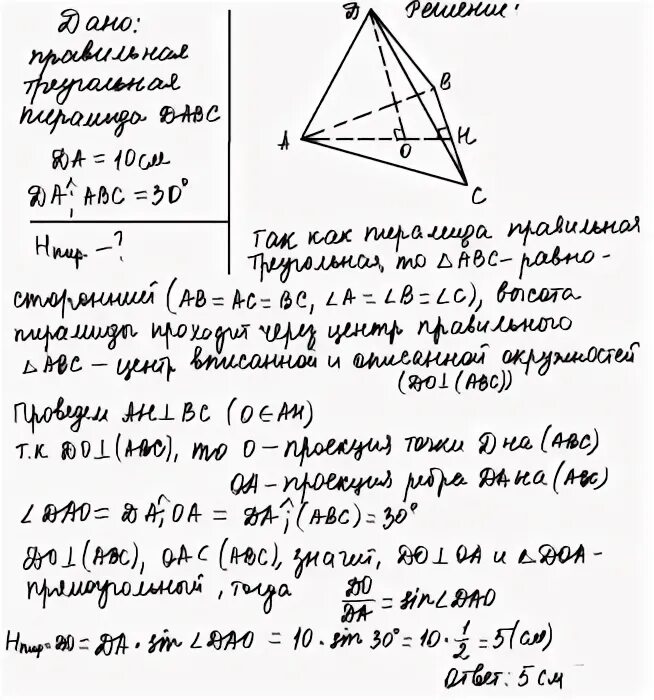 Дано:
правильная
треугольная
пирамида DABC
DA = 10 см
DA^; ABC = 30°
Hпир. – ?
Решение:
D
B
A
O
H
C
Так как пирамида правильная
треугольная, то △ABC – равно-
сторонний (AB = AC = BC, ∠A = ∠B = ∠C), высота
пирамиды проходит через центр правильного
△ABC – центр вписанной и описанной окружностей
(DO⊥(ABC))
Проведем AH⊥BC (O∈AH)
т.к DO⊥(ABC), то O – проекция точки D на (ABC)
OA – проекция ребра DA на (ABC)
∠DAO = DA^; OA = DA^; (ABC) = 30°
DO⊥(ABC), OA⊂(ABC), значит, DO⊥OA и △DOA –
прямоугольный, тогда DO/DA = sin∠DAO
Hпир = DO = DA · sin ∠DAO = 10 · sin 30° = 10 · 1/2 = 5 (см)
Ответ: 5 см